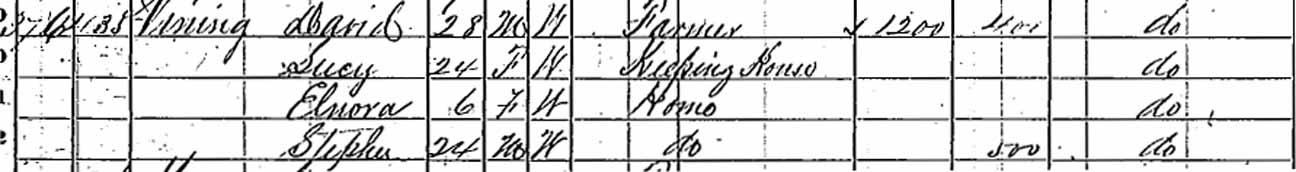 Vining David 28 M W Farmer 1200 400 do
Lucy 24 F W Keeping House do
Elnora 6 F W Home do
Stephen 24 M W do 500 do